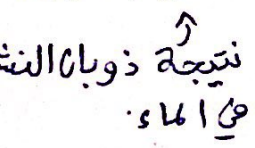 نتيجة ذوبان النش
في الماء.